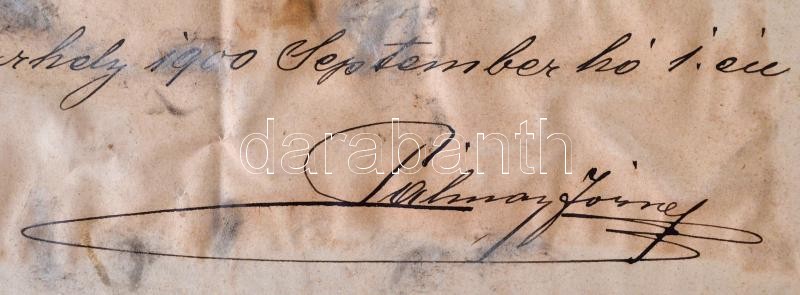 rhely 1900 September hó 1.én
darabanth
Pálmay József